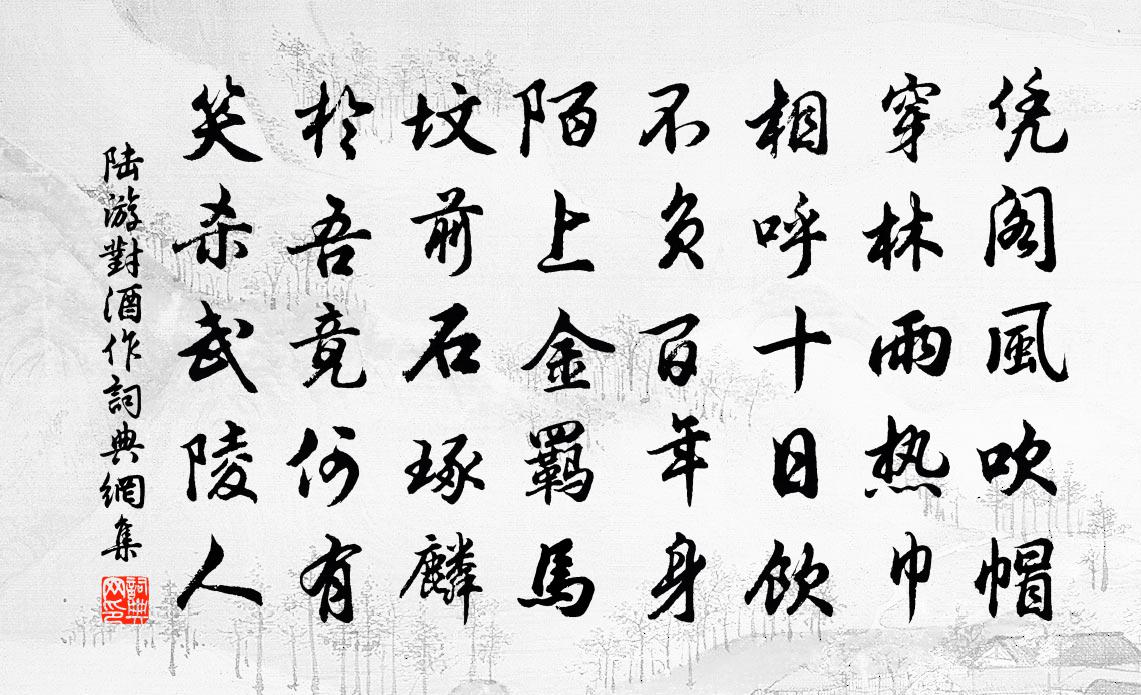 凭阁風吹帽
穿林雨热巾
相呼十日飲
不負百年身
陌上金羈馬
坟前石琢麟
於吾竟何有
笑杀武陵人
陸游對酒作詞典網集
詞典网印